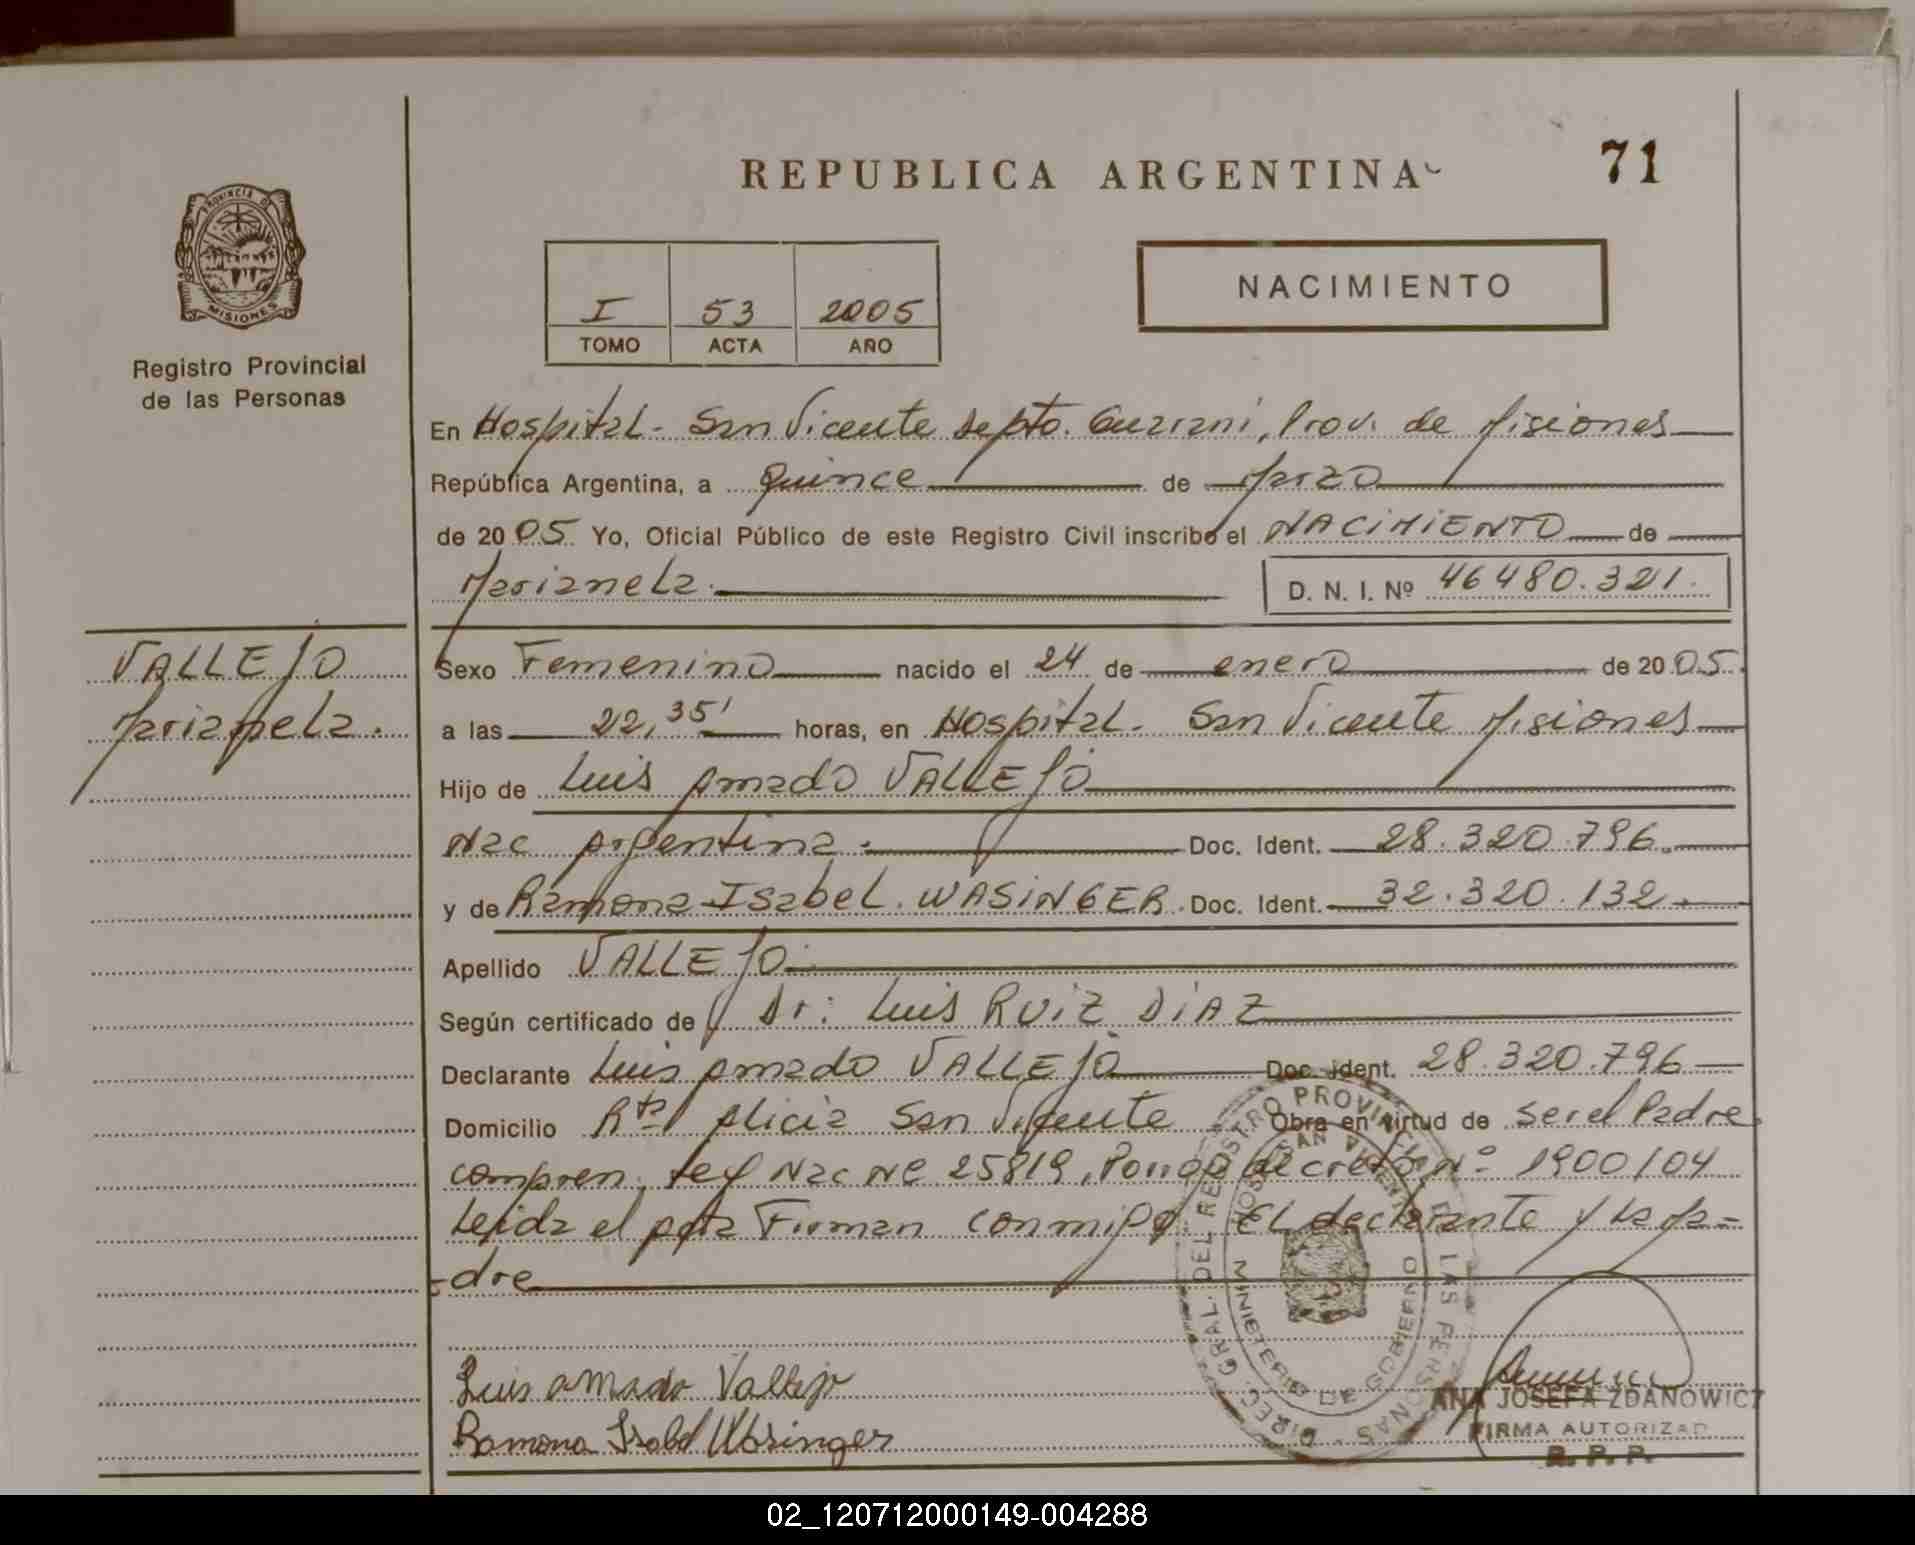 REPUBLICA ARGENTINA
71
PROVINCIA DE
MISIONES
Registro Provincial
de las Personas
I 53 2005
TOMO ACTA AÑO
NACIMIENTO
En Hospital - San Vicente Depto. Guaraní, Prov. de Misiones
República Argentina, a quince de Marzo
de 2005 Yo, Oficial Público de este Registro Civil inscribo el NACIMIENTO de
Marianela. D. N. I. Nº 46480.321.
VALLEJO
Marianela.
Sexo Femenino nacido el 24 de enero de 2005.
a las 22,35' horas, en Hospital - San Vicente Misiones
Hijo de Luis Amado VALLEJO
Nac Argentina. Doc. Ident. 28.320.796.
y de Ramona Isabel WASINGER. Doc. Ident. 32.320.132.
Apellido VALLEJO.
Según certificado de Dr: Luis RUIZ DIAZ
Declarante Luis Amado VALLEJO Doc. ident. 28.320.796
Domicilio Rta Alicia San Vicente Obra en virtud de ser el Padre
compren. Ley Nac Nº 25819, decreto Nº 1900/04
Leída el acta Firman conmigo El declarante y la Ma-
-dre
Luis amado Vallejo
Ramona Isabel Wasinger
DIREC. GRAL. DEL REGISTRO PROVINCIAL DE LAS PERSONAS
HOSP. SAN VICENTE
MINISTERIO DE GOBIERNO
ANA JOSEFA ZDANOWICZ
FIRMA AUTORIZAD
R. P. P.
02_120712000149-004288